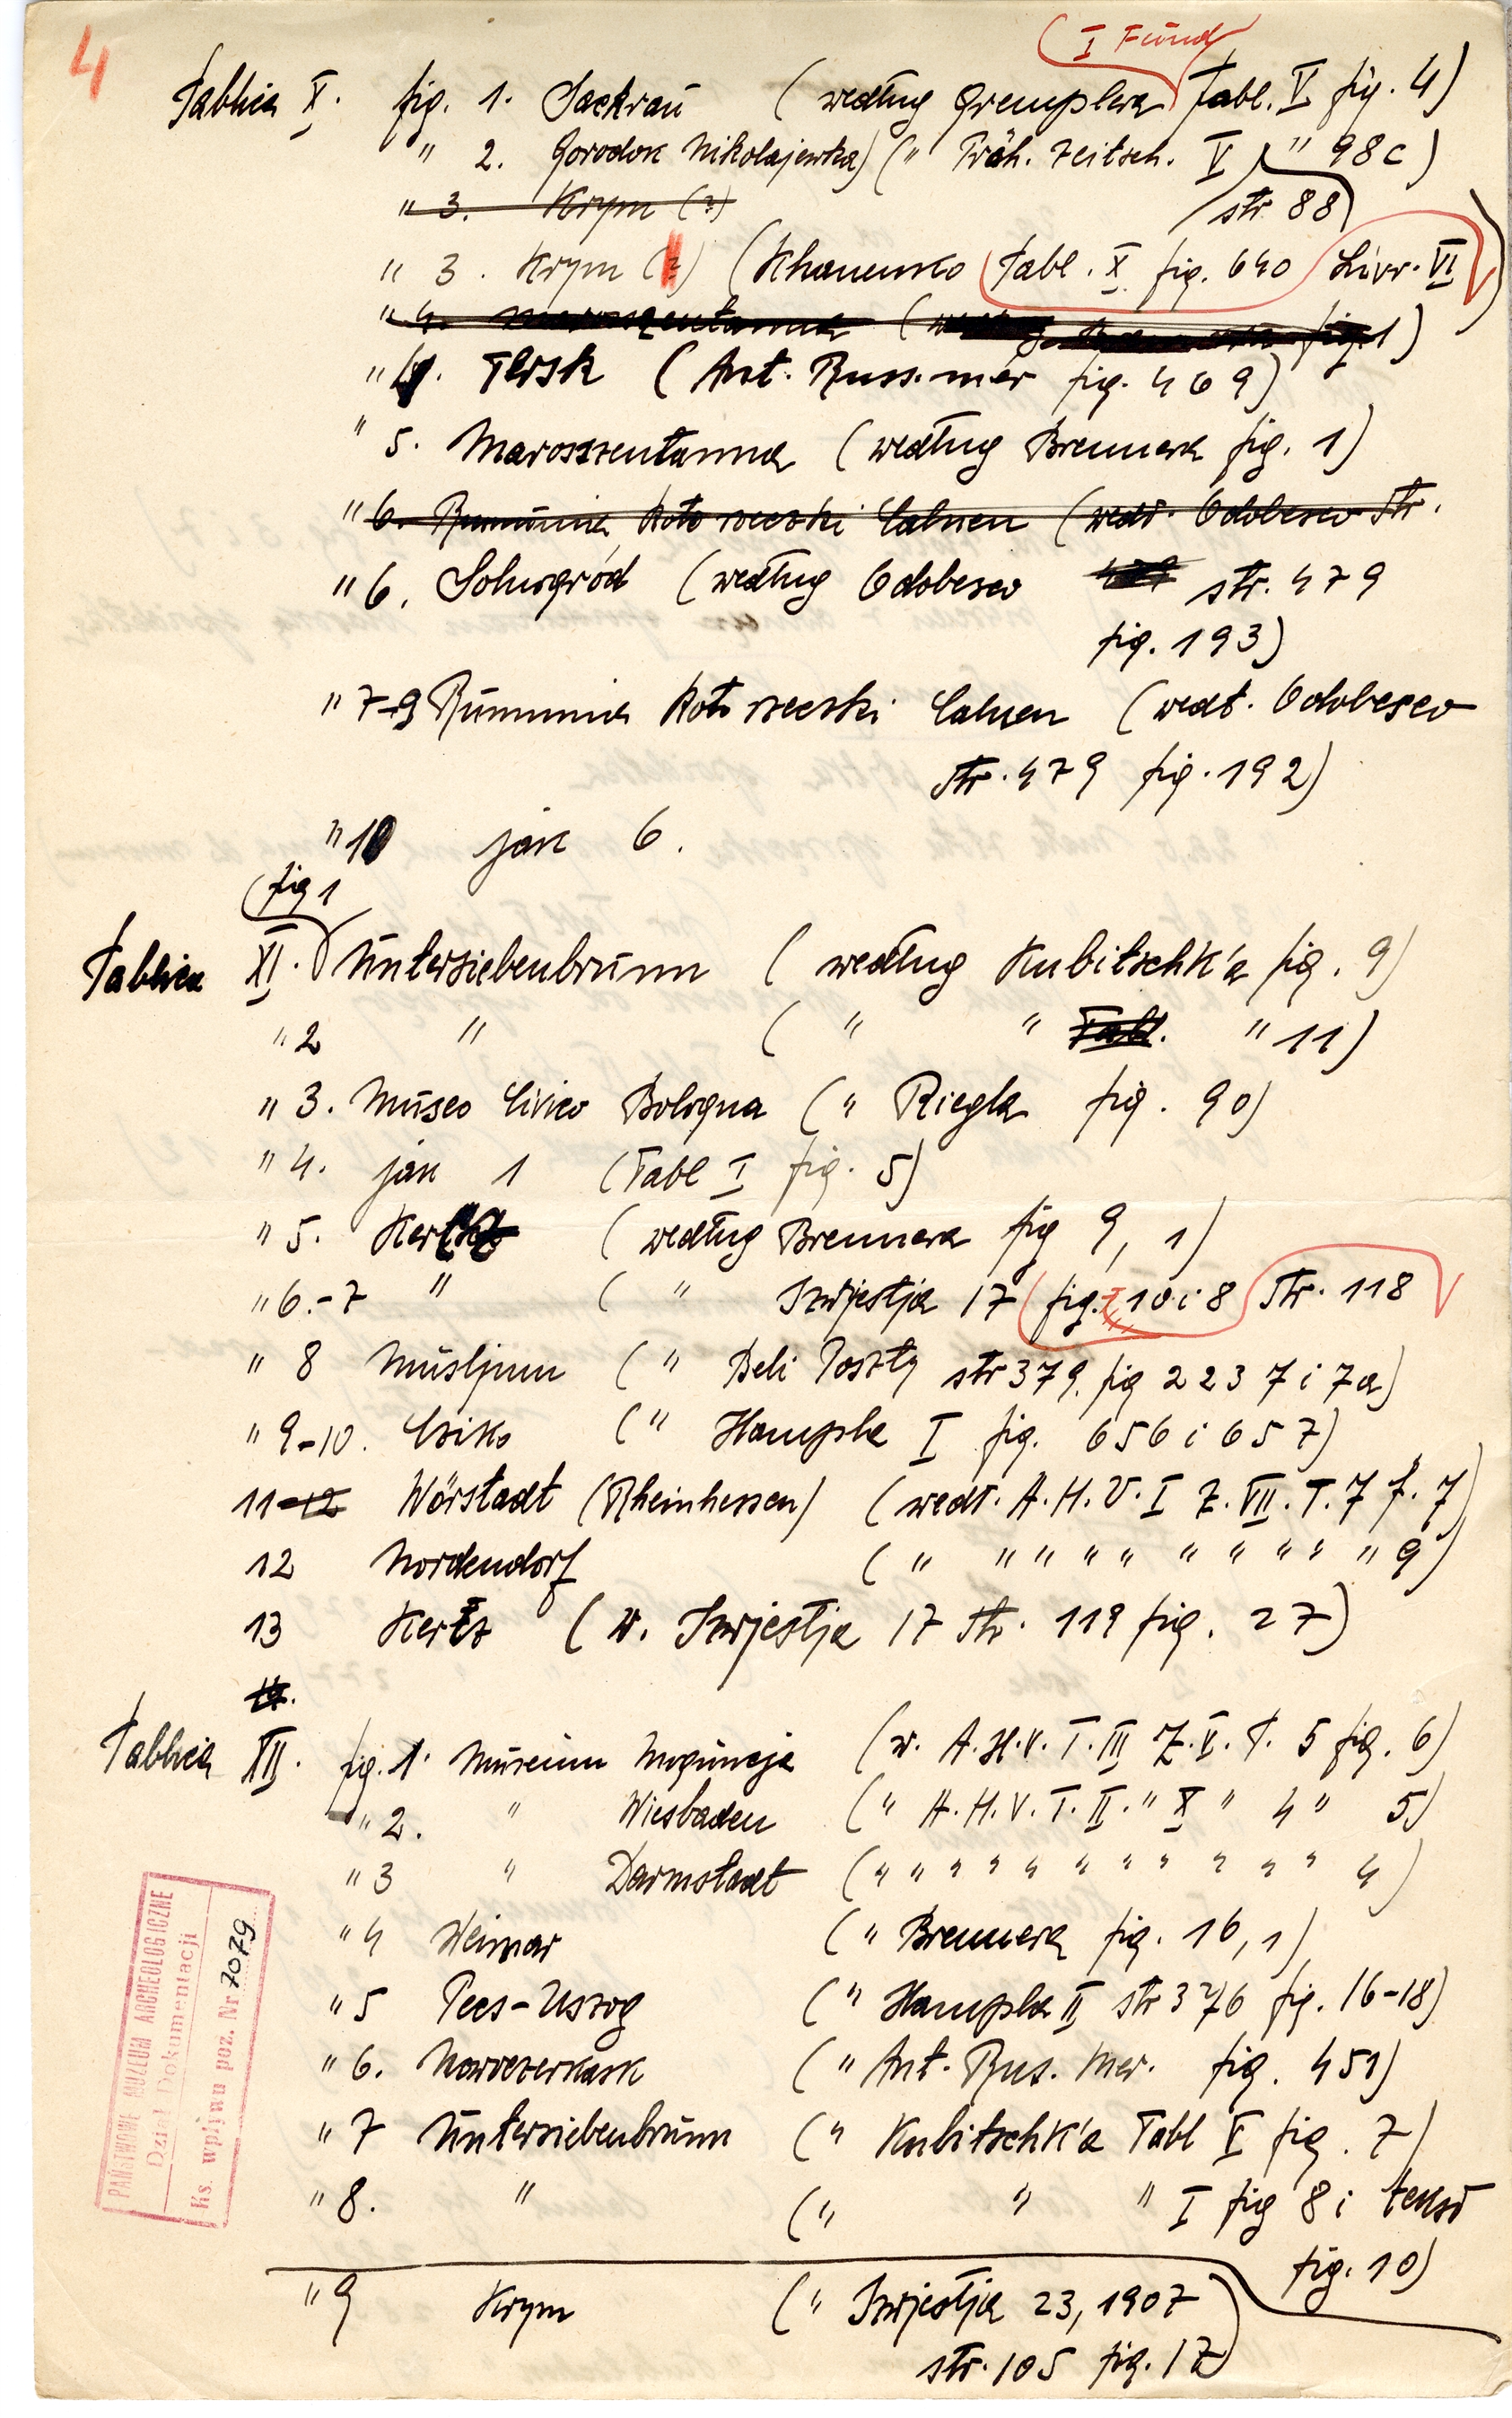 4
( I Fund
Tablica X. fig. 1. Sackrau (według Gremplera Tabl. V fig. 4)
" 2. Gorodok Nikolajewka) (" Präh. Zeitsch. V " 98c)
" 3. Krym (?) str 88)
" 3. Krym (?) (Khanenko Tabl. X fig. 640 Livr. VI)
" 4. Marosszentanna ( fig. 1)
" 4. Tersk (Ant. Russ. mér fig. 469)
" 5. Marosszentanna (według Brennera fig. 1)
" 6. Rumunia Koto rzeczki Calnen (wedł. Odobesco str.
" 6. Solnogród (według Odobesco str. 479
fig. 193)
" 7-9 Rumunia Koto rzeczki Calnen (wedł. Odobesco
str. 479 fig. 192)
" 10 jak 6.
(fig 1
Tablica XI. Untersiebenbrunn (według Kubitschk'a fig. 9)
" 2 " ( " " Tabl. " 11)
" 3. Museo Civico Bologna (" Riegla fig. 90)
" 4. jak 1 (Tabl I fig. 5)
" 5. Kercz (według Brennera fig 9, 1)
" 6.-7 " ( " Izwjestja 17 (fig. 10 i 8 str. 118
" 8 Musljum (" Beli Poszty str 379. fig 223 7 i 7a)
" 9-10. Csiko (" Hampla I fig. 656 i 657)
11-12 Wörstadt (Rheinhessen) (wedł. A. H. V. I Z. VII. T. 7 f. 7)
12 Nordendorf (" " " " " " " " " " 9)
13 Kercz (w. Izwjestja 17 str. 119 fig. 27)
14.
Tablica XII. fig. 1. Museum Moguncja (w. A. H. V. T. III Z. V. T. 5 fig. 6)
" 2. " Wiesbaden (" A. H. V. T. II. " X " 4 " 5)
" 3 " Darmstadt (" " " " " " " " " " " 4)
" 4 Weimar (" Brennera fig. 16, 1)
" 5 Pecs-Uszog (" Hampla II str 376 fig. 16-18)
" 6. Nowoczerkask (" Ant. Rus. Mer. fig. 451)
" 7 Untersiebenbrunn (" Kubitschk'a Tabl V fig. 7)
" 8. " (" " " I fig 8 i tekst
fig. 10)
" 9 Krym (" Izwjestja 23, 1907
str. 105 fig. 17)
PAŃSTWOWE MUZEUM ARCHEOLOGICZNE
Dział Dokumentacji
Ks. wpływu poz. Nr 7079